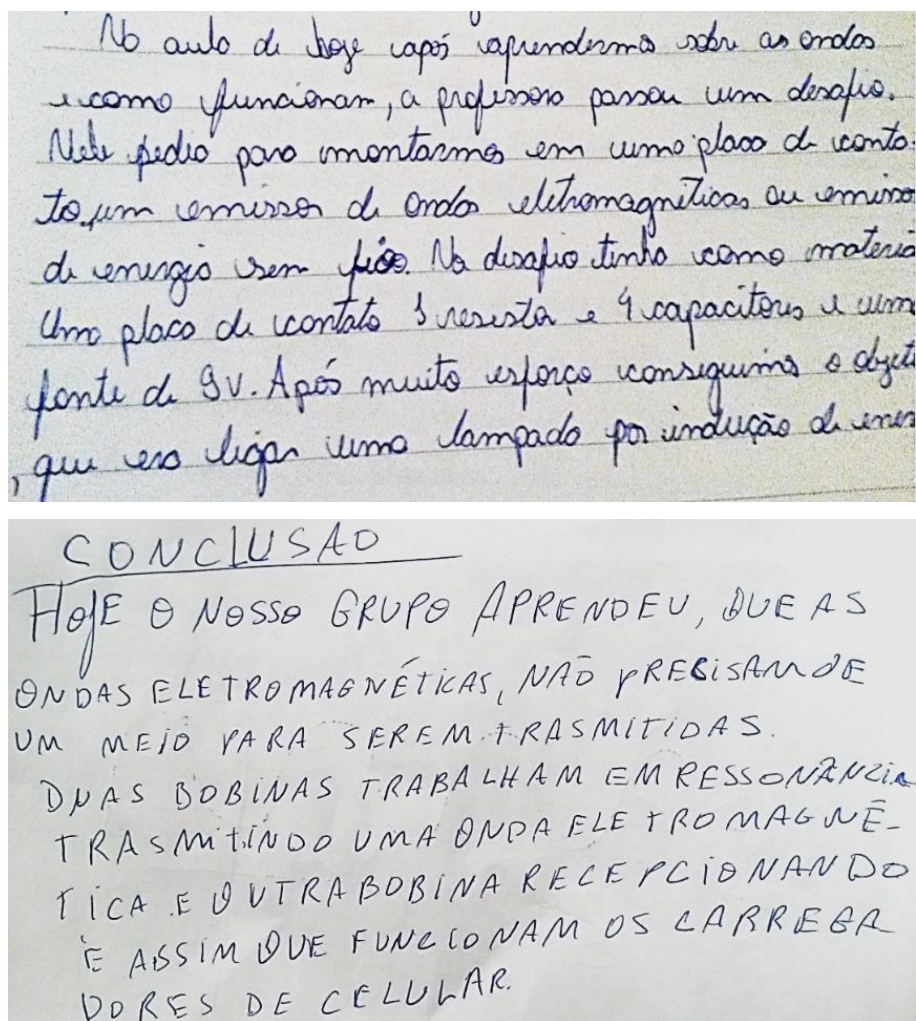 No aula de hoje após aprendermos sobre as ondas
e como funcionam, a professora passou um desafio.
Nele pedio para montarmos em uma placa de conta-
to, um emissor de ondas eletromagnéticas ou emisso
de energia sem fios. No desafio tinha como materia
Uma placa de contato 1 resistor e 4 capacitores e uma
fonte de 9V. Após muito esforço conseguimos o objet
, que era ligar uma lampada por indução de ener
CONCLUSAO
HOJE O NOSSO GRUPO APRENDEU, QUE AS
ONDAS ELETROMAGNÉTICAS, NÃO PRECISAM DE
UM MEIO PARA SEREM TRASMITIDAS.
DUAS BOBINAS TRABALHAM EM RESSONÂNCIA
TRASMITINDO UMA ONDA ELETROMAGNÉ-
TICA E OUTRA BOBINA RECEPCIONANDO
É ASSIM QUE FUNCIONAM OS CARREGA
DORES DE CELULAR.